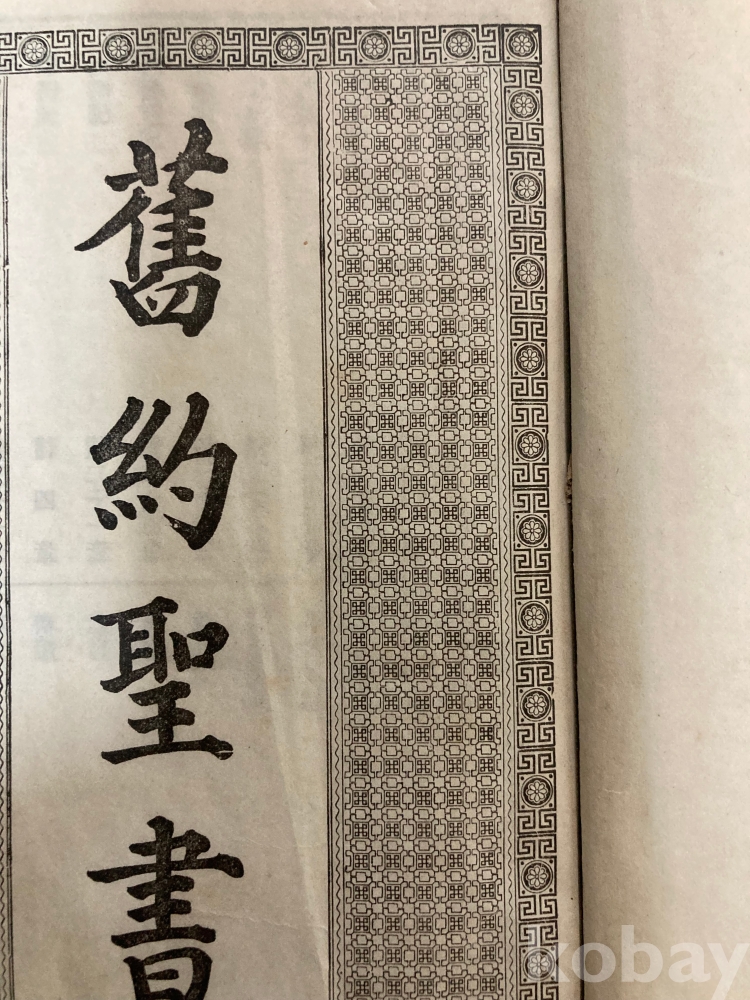 舊約聖書
kobay